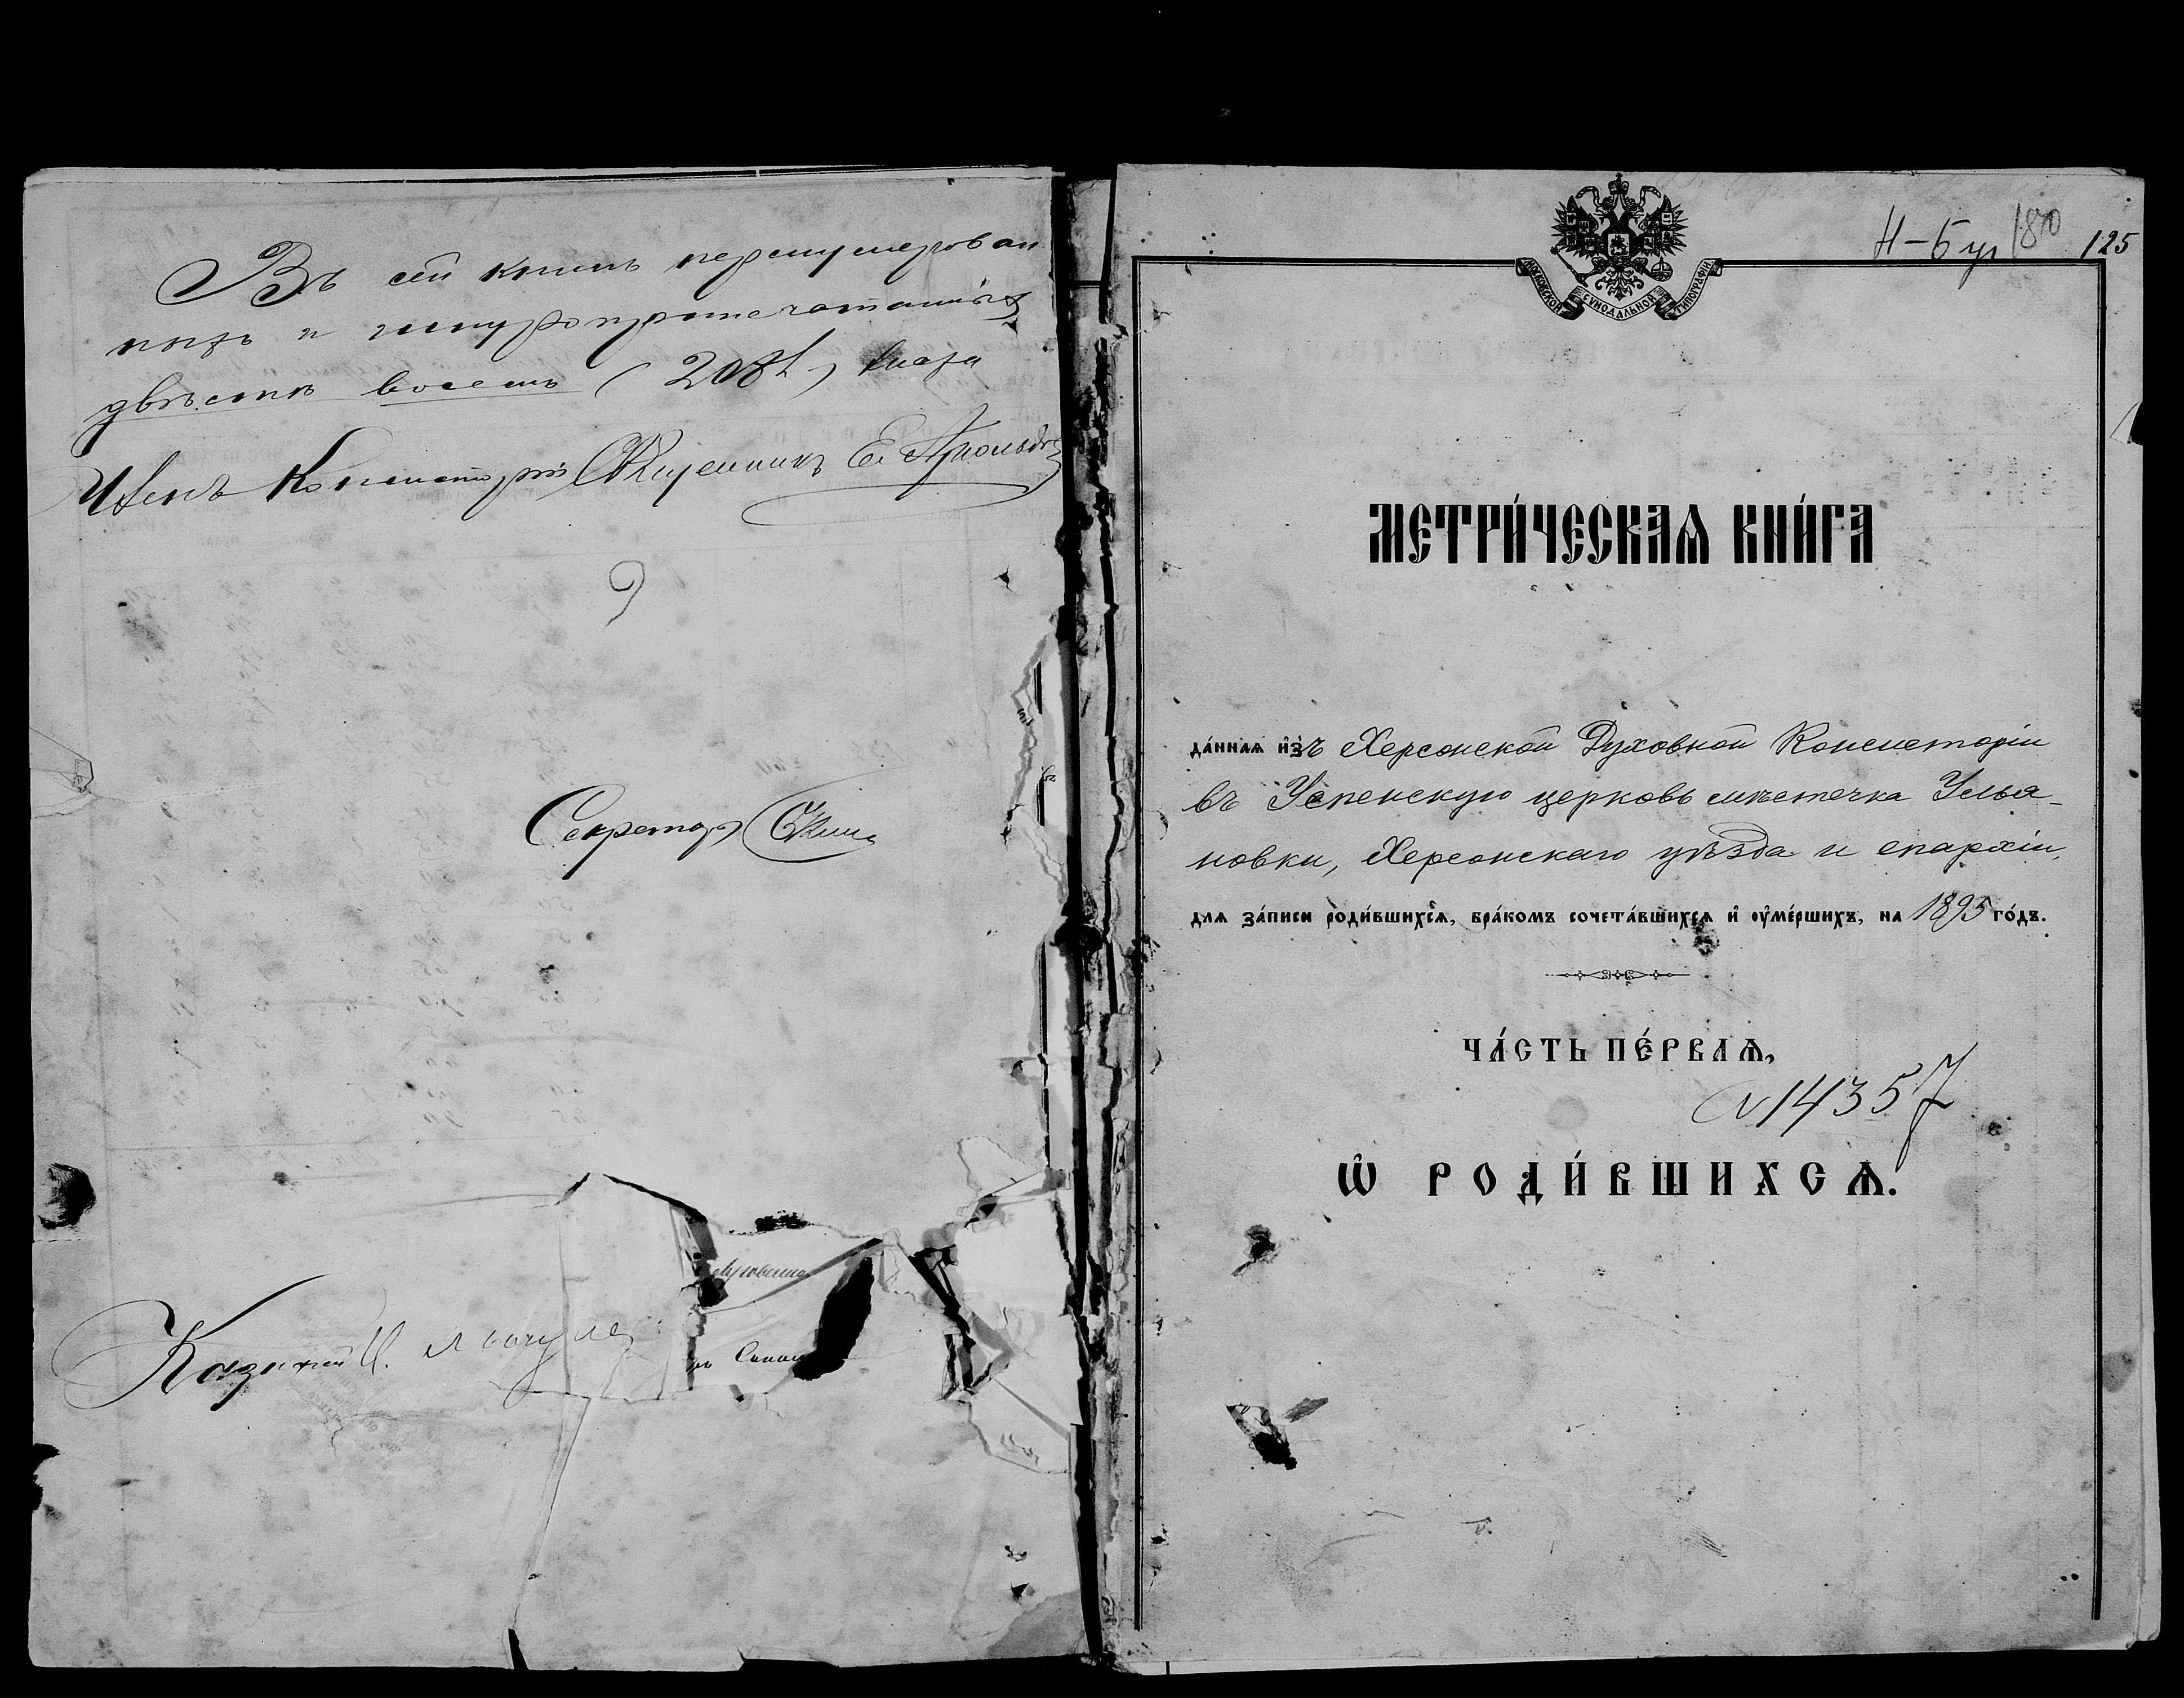 Въ сей книгѣ перенумерован
ныхъ и шнуропропечатанныхъ
двѣсти восемь (208) листа
Членъ Консисторіи Священникъ
9
Секретарь
Казначей
МОСКОВСКОЙ СѴНОДАЛЬНОЙ ТИПОГРАФІИ
Н-Буг 1870 125
МЕТРИ́ЧЕСКАѦ КНИ́ГА
да́ннаѧ и҆зъ Херсонской Духовной Консисторіи
въ Успенскую церковь мѣстечка Улья-
новки, Херсонскаго уѣзда и епархіи,
длѧ за́писи роди́вшихсѧ, бра́комъ сочета́вшихсѧ и҆ ᲂу҆ме́ршихъ, на 1895 го́дъ.
ЧА́СТЬ ПЕ́РВАѦ,
№ 14357
Ѡ҆ РОДИ́ВШИХСѦ.